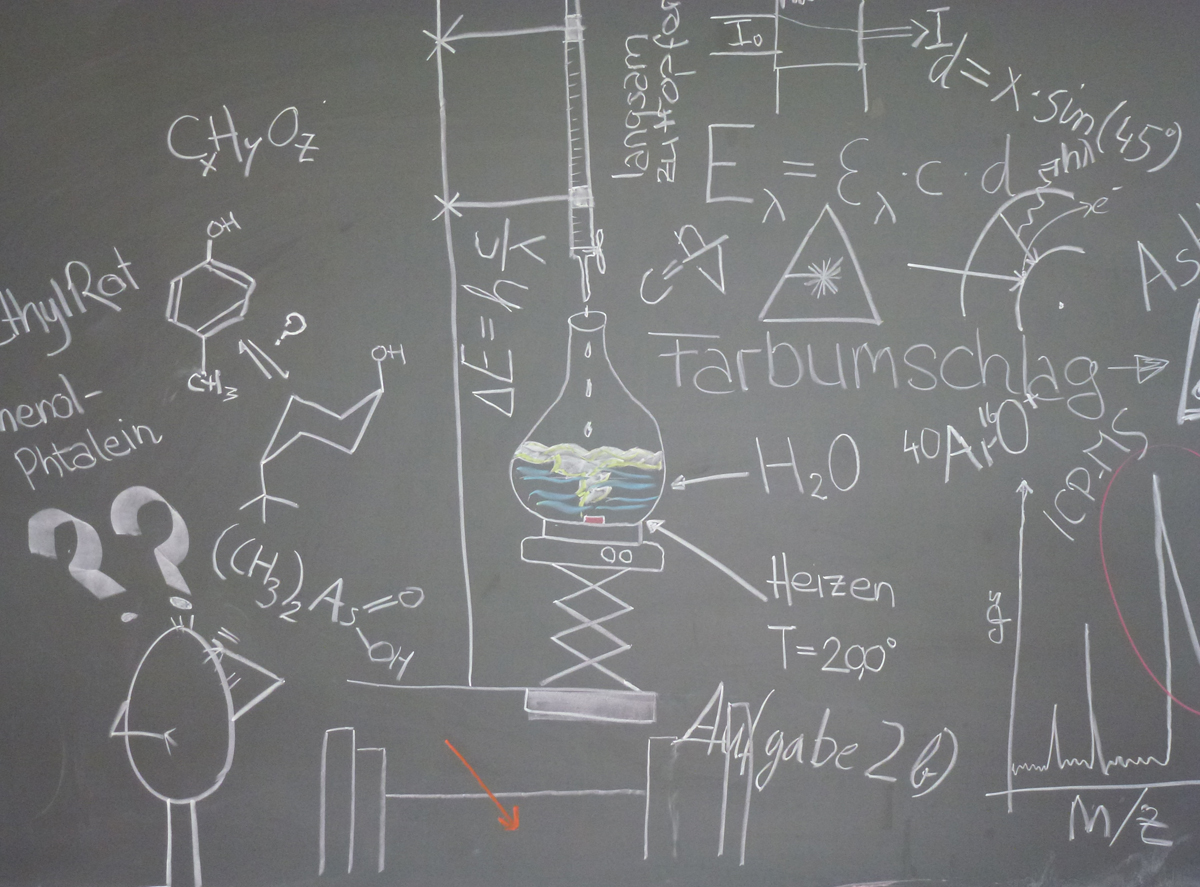 CxHyOz
OH
CH3
OH
thylRot
henol-
Phtalein
??
(CH3)2As=O
OH
langsam
zutropfen
I0
I
d=x·sin(45°)
Eλ=ελ·c·d
hλ
e-
ΔE=h
As
Farbumschlag
H2O
40Ar16O+
ICP-MS
Heizen
T=200°
Aufgabe 2b)
M/z
?